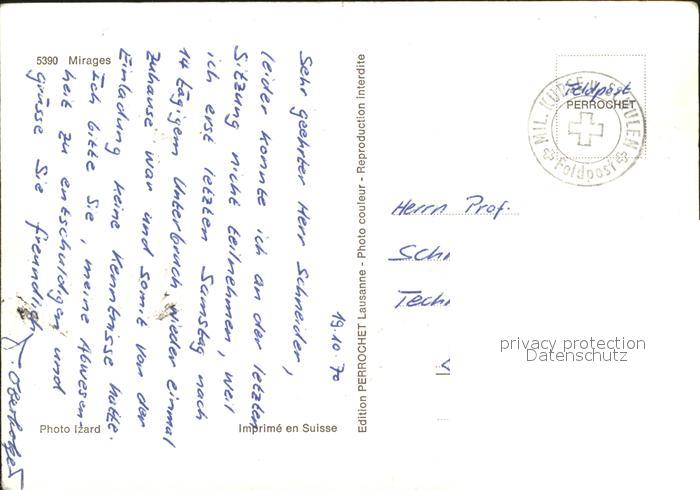 5390 Mirages
19.10.70
Sehr geehrter Herr Schneider,
leider konnte ich an der letzten
Sitzung nicht teilnehmen, weil
ich erst letzten Samstag nach
14 tägigem Unterbruch wieder einmal
Zuhause war und somit von der
Einladung keine Kenntnisse hatte.
Ich bitte Sie, meine Abwesen-
heit zu entschuldigen und
grüsse Sie freundlich
Photo Izard
Imprimé en Suisse
Edition PERROCHET Lausanne - Photo couleur - Reproduction interdite
Feldpost
PERROCHET
MIL. KURSE U. SCHULEN
Feldpost
Herrn Prof.
Sch
Tech
privacy protection
Datenschutz